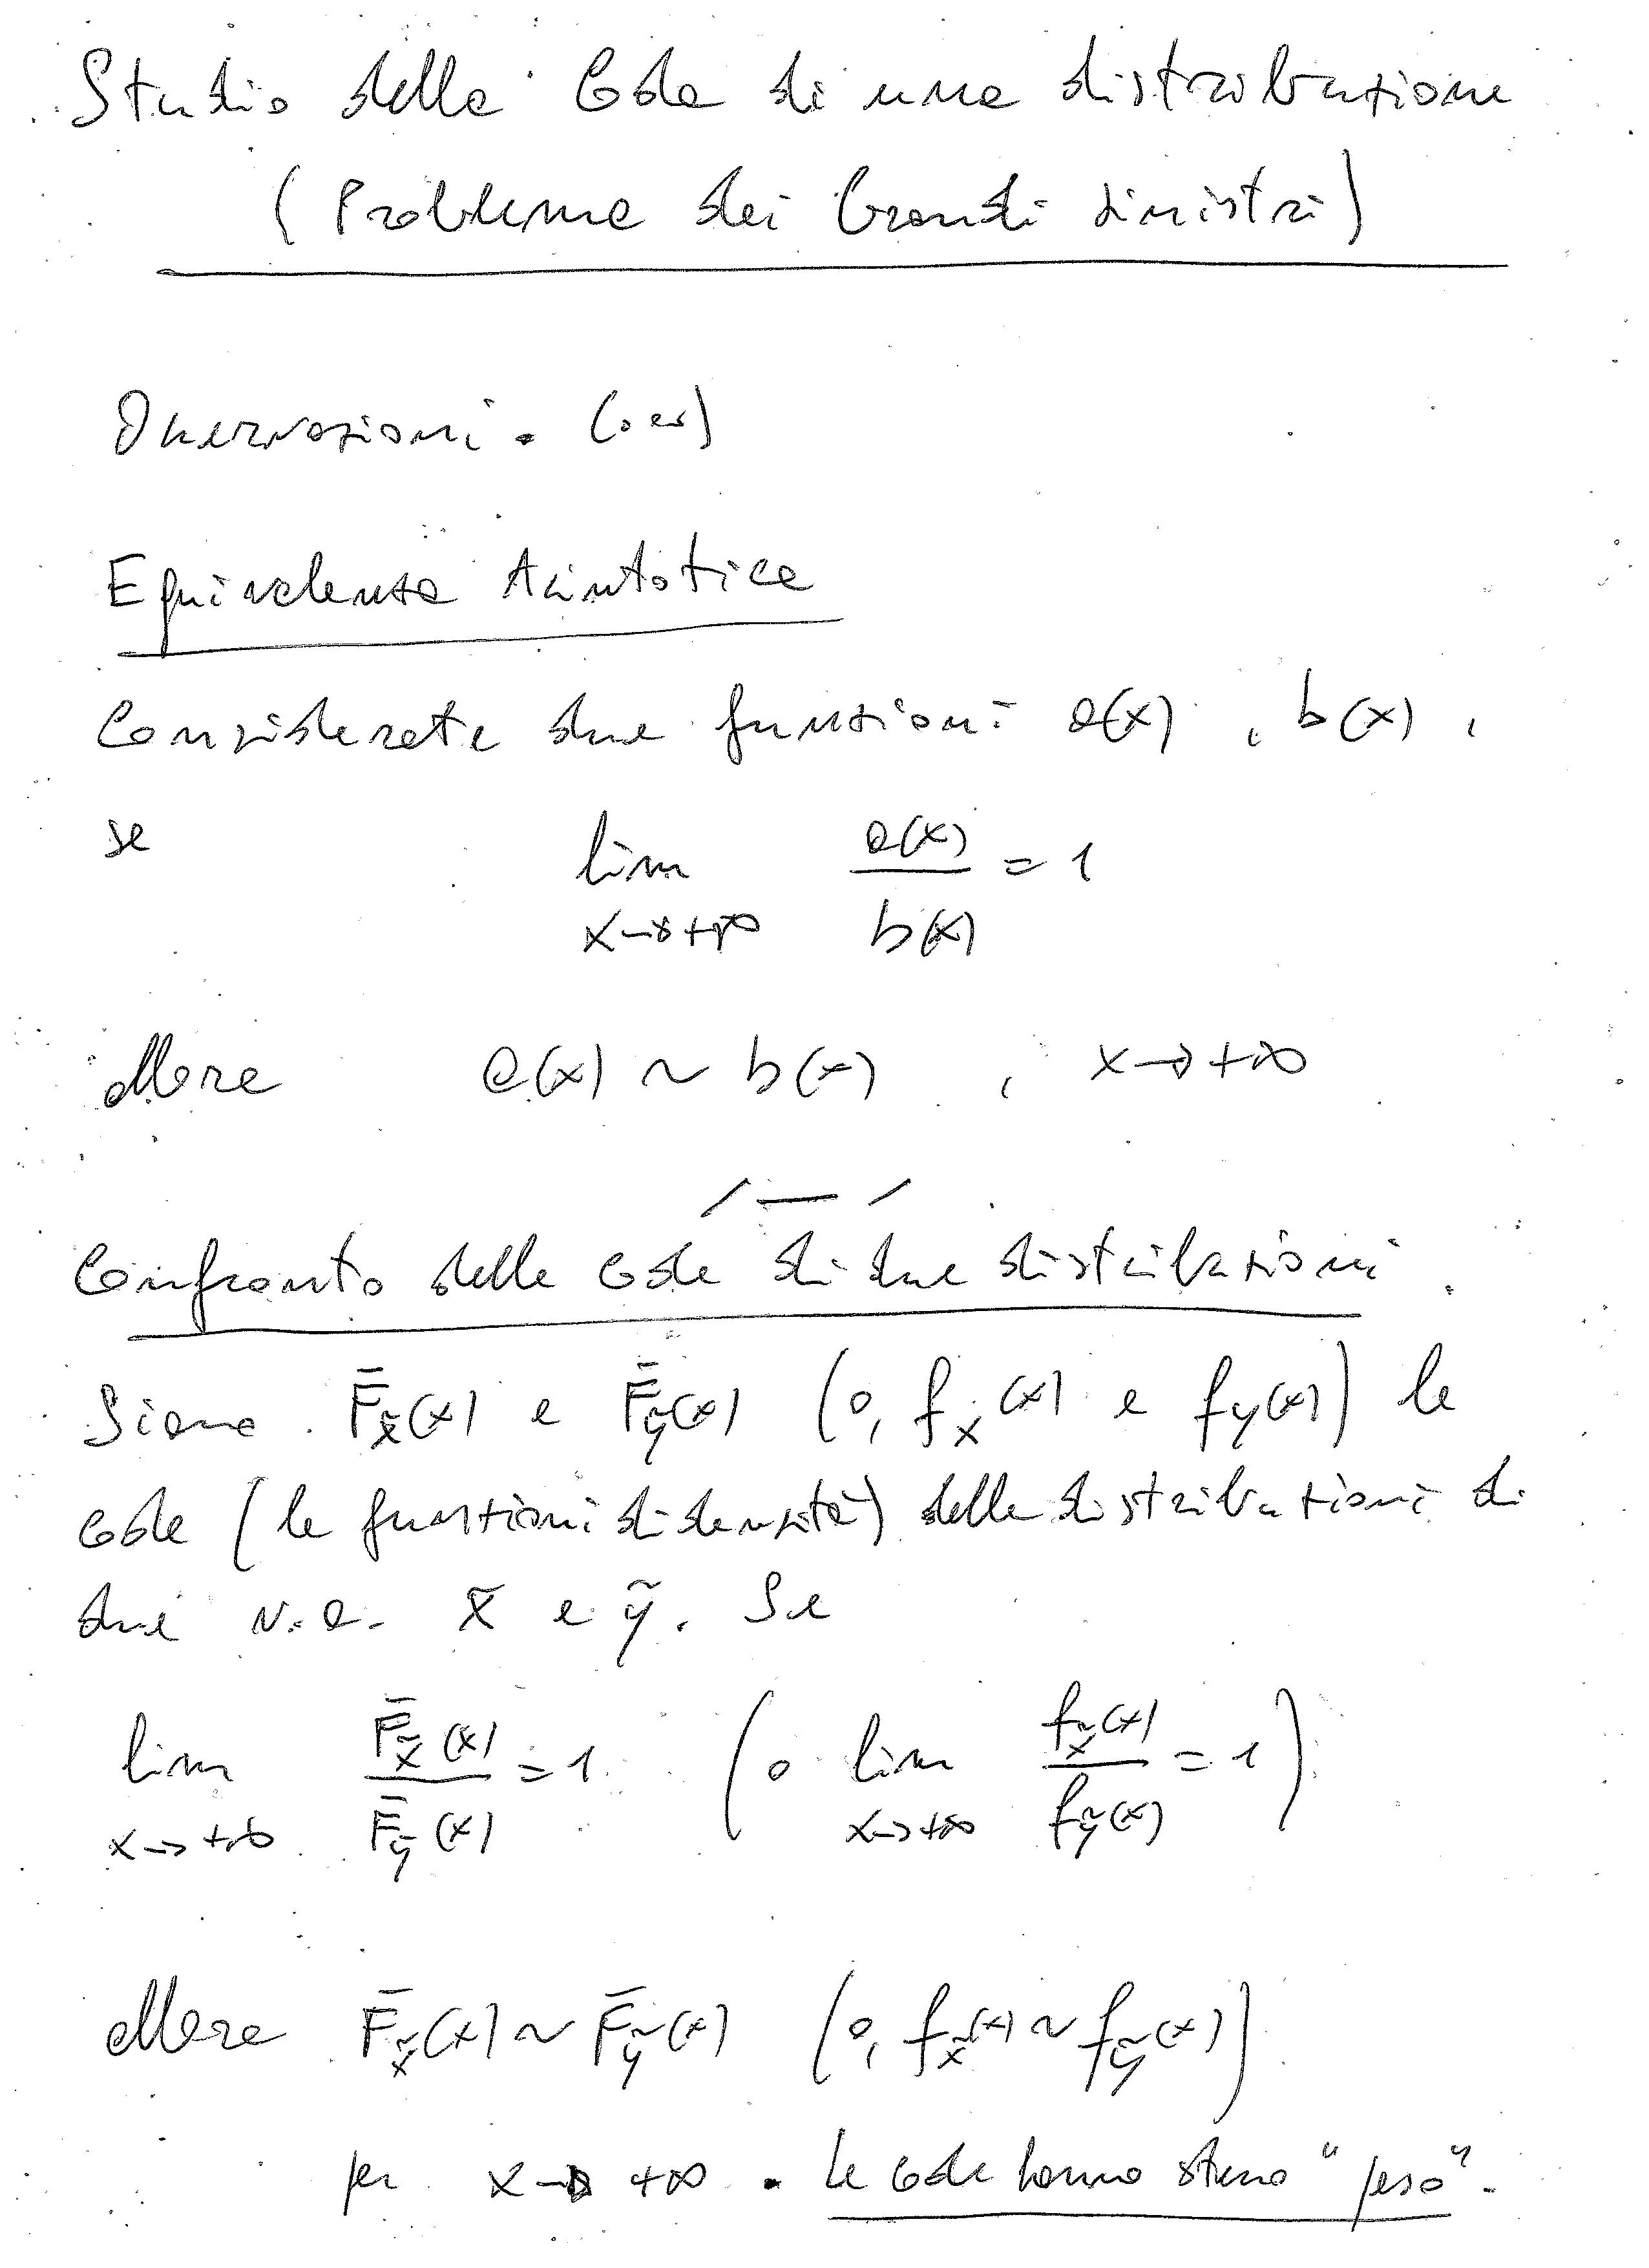 Studio della Coda di una distribuzione
(Problema dei Grandi Sinistri)
Osservazioni. (...)
Equivalenza Asintotica
Considerate due funzioni a(x), b(x),
se lim a(x)/b(x) = 1
x→+∞
allora a(x) ~ b(x) , x→+∞
Confronto delle code di due distribuzioni.
Siano F̄_x̃(x) e F̄_ỹ(x) (o, f_x(x) e f_y(x)) le
code (le funzioni di densità) delle distribuzioni di
due v.a. x̃ e ỹ. Se
lim F̄_x̃(x)/F̄_ỹ(x) = 1 (o lim f_x̃(x)/f_ỹ(x) = 1)
x→+∞ x→+∞
allora F̄_x̃(x) ~ F̄_ỹ(x) (o, f_x̃(x) ~ f_ỹ(x))
per x→+∞. Le code hanno stesso "peso".